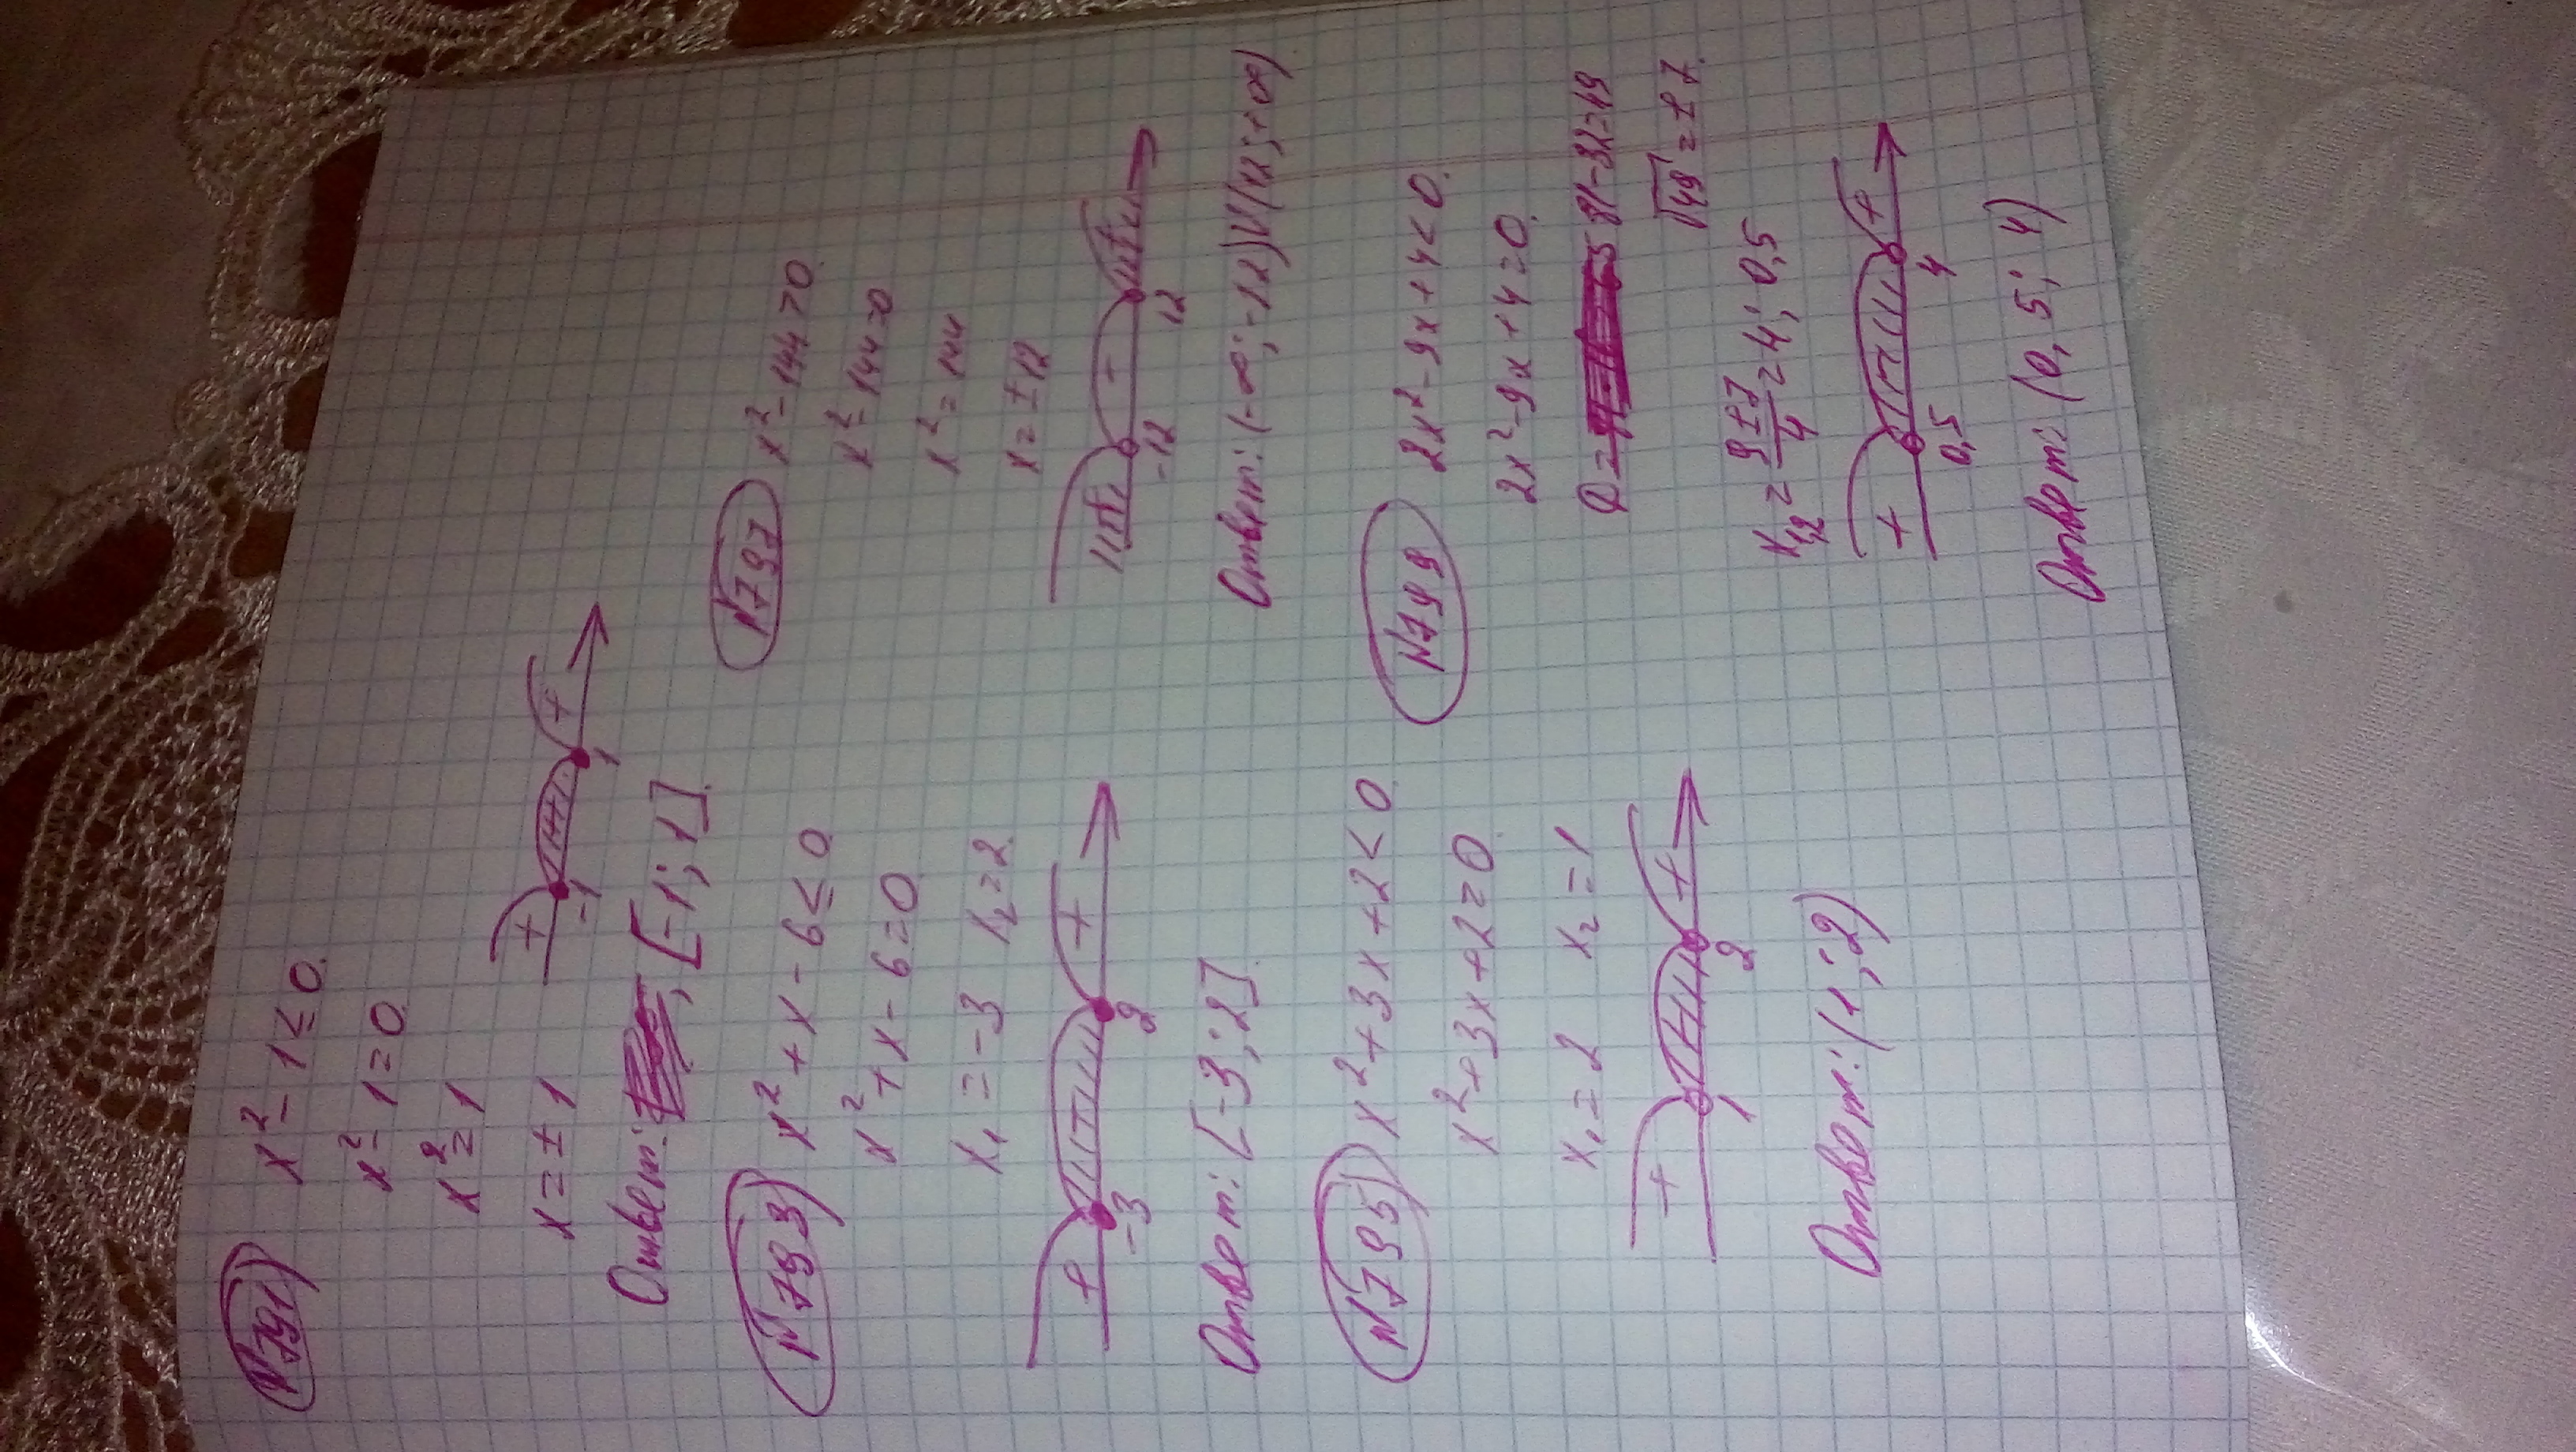 N791) x² - 1 ≤ 0.
x² - 1 = 0.
x² = 1
x = ± 1
+ + + 
-1 1
Ответ: [-1; 1].
N793) x² + x - 6 ≤ 0.
x² + x - 6 = 0.
x₁ = -3 x₂ = 2.
+ - +
-3 2
Ответ: [-3; 2].
N795) x² + 3x + 2 < 0.
x² + 3x + 2 = 0.
x₁ = 2 x₂ = 1
+ - +
1 2
Ответ: (1; 2)
N797 x² - 144 > 0.
x² - 144 = 0
x² = 144
x = ± 12
+ - +
-12 12
Ответ: (-∞; -12) U (12; +∞)
N799 2x² - 9x + 4 < 0.
2x² - 9x + 4 = 0.
D = 81 - 32 = 49
√49 = ± 7.
x₁,₂ = (9 ± 7)/4 = 4; 0,5
+ - +
0,5 4
Ответ: (0,5; 4)